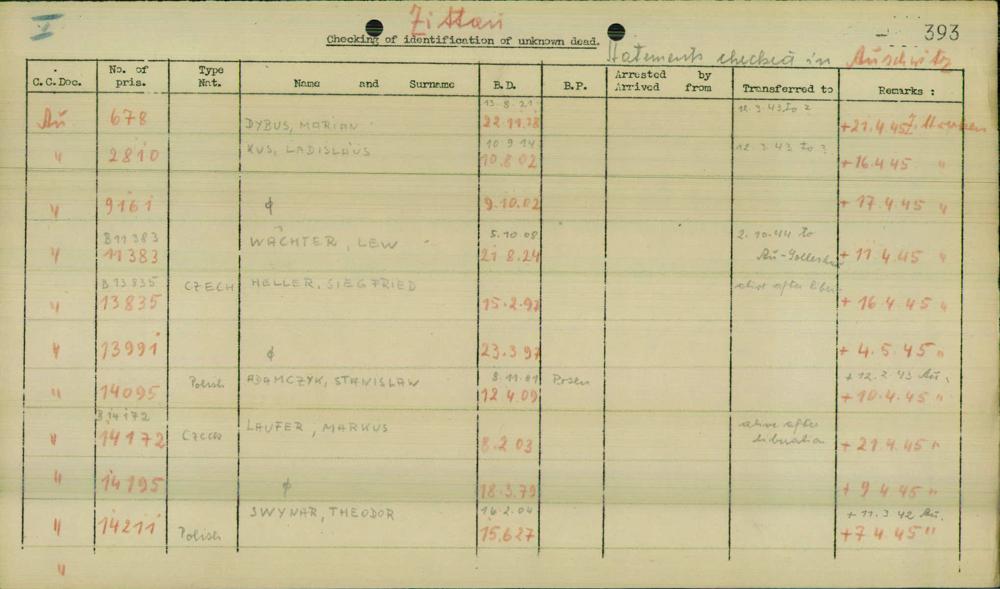 V
Zittau
393
Checking of identification of unknown dead.
Statements checked in Auschwitz
C.C.Doc. No. of pris. Type Nat. Name and Surname B.D. B.P. Arrested by Arrived from Transferred to Remarks :
13.8.21 12.3.43 to ?
Au 678 DYBUS, MARIAN 22.11.18 +21.4.45
10 9 14 12.3.43 to ?
" 2810 KUS, LADISLAUS 10.8.02 +16.4.45 "
" 9161 ϕ 9.10.02 + 17.4.45 "
B11383 5.10.08 2.10.44 to
" 11383 WÄCHTER, LEW 21 8.24 + 11.4.45 "
B.13835 CZECH HELLER, SIEGFRIED alive after liber.
" 13835 15.2.97 + 16.4.45 "
" 13991 ϕ 23.3 97 + 4.5.45 "
Polish ADAMCZYK, STANISLAW 8.11.01 Posen + 12.2.43 Au.
" 14095 12 4.09 +10.4.45 "
B.14172 LAUFER, MARKUS alive after
" 14172 Czech 8.2 03 liberation + 21.4.45 "
" 14195 ϕ 18.3.79 + 9 4 45 "
SWYNAR, THEODOR 16.2.04 + 11.3 42 Au.
" 14211 Polish 15.627 +7 4.45 "
"